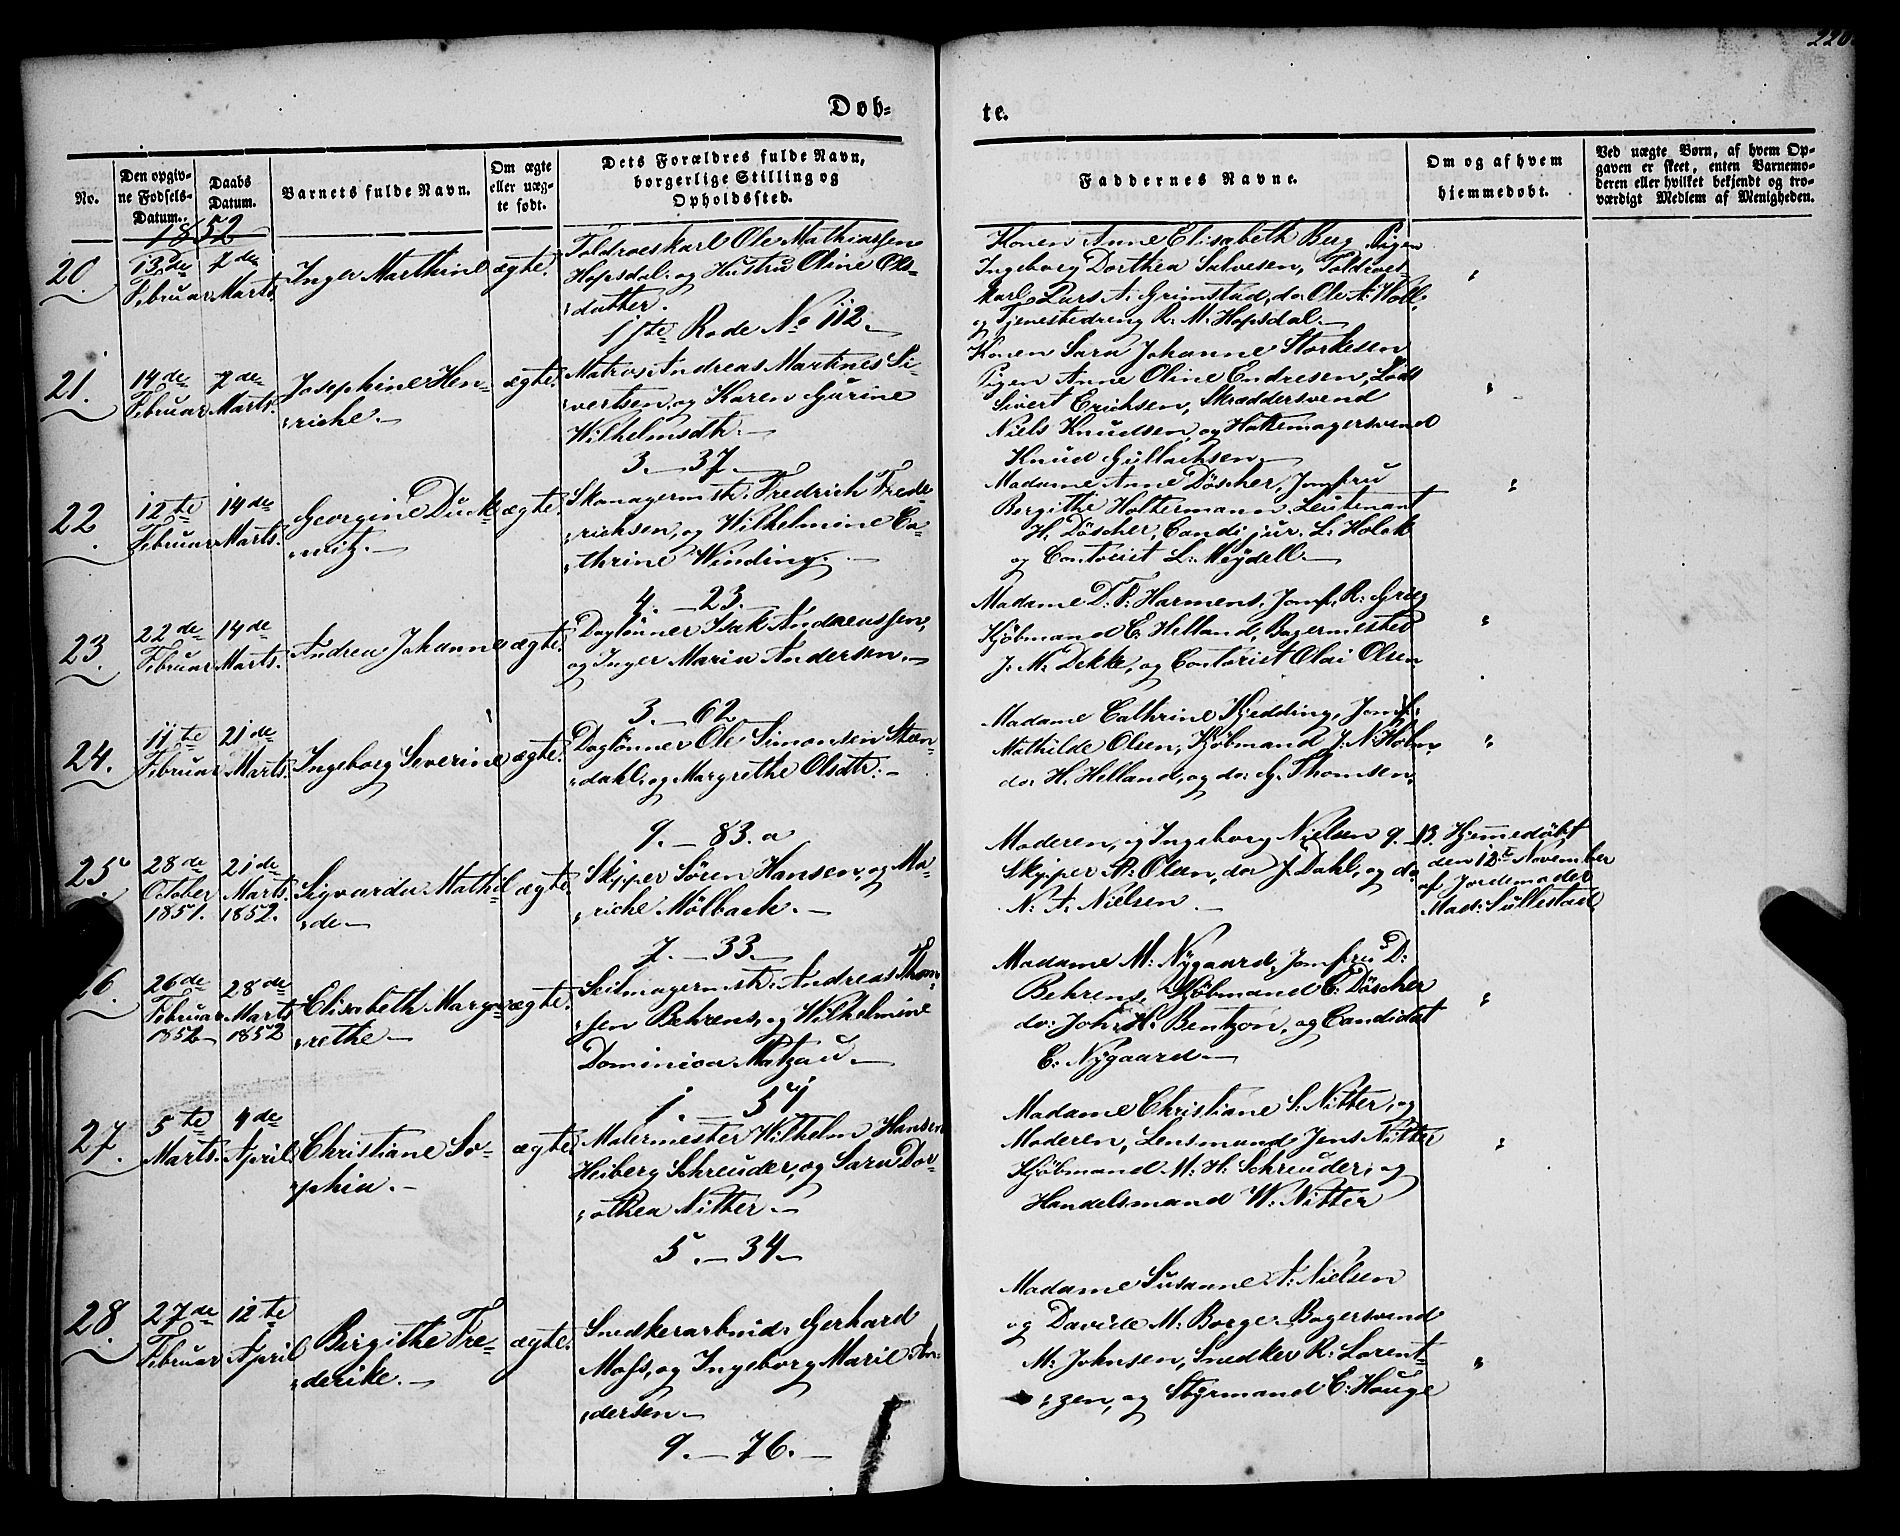 220
Døb-
te.
No.
Den opgiv-
ne Fødsels-
Datum.
Daabs
Datum.
Barnets fulde Navn.
Om ægte
eller uæg-
te født.
Dets Forældres fulde Navn,
borgerlige Stilling og
Opholdssted.
Faddernes Navne.
Om og af hvem
hjemmedøbt.
Ved uægte Børn, af hvem Op-
gaven er skeet, enten Barnemo-
deren eller hvilket bekjendt og tro-
værdigt Medlem af Menigheden.
1852
20.
13de
Februar
7de
Marts.
Inger Marthine
ægte.
Toldroeskarl Ole Mathiassen
Hopsdal. og Hustru Oline Ols-
datter.
11te Rode No 112.
Konen Anne Elisabeth Berg, Pigen
Ingeborg Dorthea Salvesen, Toldroes-
karl Lars A. Grimstad, do Ole A: Woll,
og Tjenestedreng R. M. Hopsdal.
"
21.
14de
Februar
7de
Marts.
Josephine Hen-
riche.
ægte.
Matros Andreas Martines Si-
vertsen, og Karen Gurine
Wilhelmsdtr.
3. — 37.
Konen Sara Johanne Storkesen
Pigen Anne Oline Endresen, Lods
Sivert Erichsen, Skræddersvend
Niels Knudsen, og Hattemagersvend
Knud Gullachsen
"
22.
12te
Februar
14de
Marts.
Georgine Duck-
witz.
ægte.
Skomagermstr. Fredrich Frede-
richsen, og Wilhelmine Ca-
thrine Winding.
4. — 23.
Madame Anne Döscher, Jomfru
Birgithe Holtermann, Leutenant
H. Döscher, Candi. jur. L. Holck
og Contorist L. Meydell.
"
23.
22de
Februar
14de
Marts.
Andrea Johanne
ægte.
Daglønner Isak Andreassen,
og Inger Maria Andersen.
3. — 62
Madame D. F. Harmens, Jomf. R. Grieg
Kjöbmand C. Helland, Bagermester
J. M. Dekke, og Contorist Olai Olsen
"
24.
11te
Februar
21de
Marts.
Ingeborg Severine
ægte.
Daglønner Ole Simonsen Sten-
dahl, og Margrethe Olsdtr.
9. — 83. a
Madame Cathrine Hjedding, Jomf.
Mathilde Olsen, Kjöbmand J. N. Holm,
do: H. Helland, og do: G. Thomsen,
"
25
28de
October
1851.
21de
Marts.
1852.
Sigvarda Mathil-
de
ægte.
Skipper Sören Hansen, og Ma-
riche Mölbach.
7. — 33.
Moderen, og Ingeborg Nielsen 9. — 13.
Skipper A. Olsen, do J. Dahl, og do
N. A. Nielsen
Hjemmedöbt
den 18t November
af Jordemoder
Mad: Sullestad
26
26de
Februar
1852
28de
Marts
1852
Elisabeth Marg-
rethe
ægte.
Seilmagermstr. Andreas Thom-
sen Behrens, og Wilhelmine
Dominica Matzau.
1. — 54
Madame M: Nygaard, Jomfru D:
Behrens, Kjöbmand C. Döscher
do: Joh: H. Bentzon, og Candidat
C. Nygaard
"
27.
5te
Marts.
4de
April.
Christiane So-
phia.
ægte.
Malermester Wilhelm Hansen
Heiberg Schreuder, og Sara Dor-
othea Nitter.
5. — 34
Madame Christiane S. Nitter, og
Moderen, Lensmand Jens Nitter
Kjöbmand M: H: Schreuder, og
Handelsmand W. Nitter
"
28
27de
Februar
12te
April
Birgithe Fre-
derike.
ægte.
Snedkerarbeid. Gerhard
Moss, og Ingeborg Marie An-
dersen
9. — 76.
Madame Susanne A: Nielsen
og Davide M. Borge, Bagersvend
M: Johnsen, Snedker R: Lorent-
zen, og Styrmand C: Hauge
"